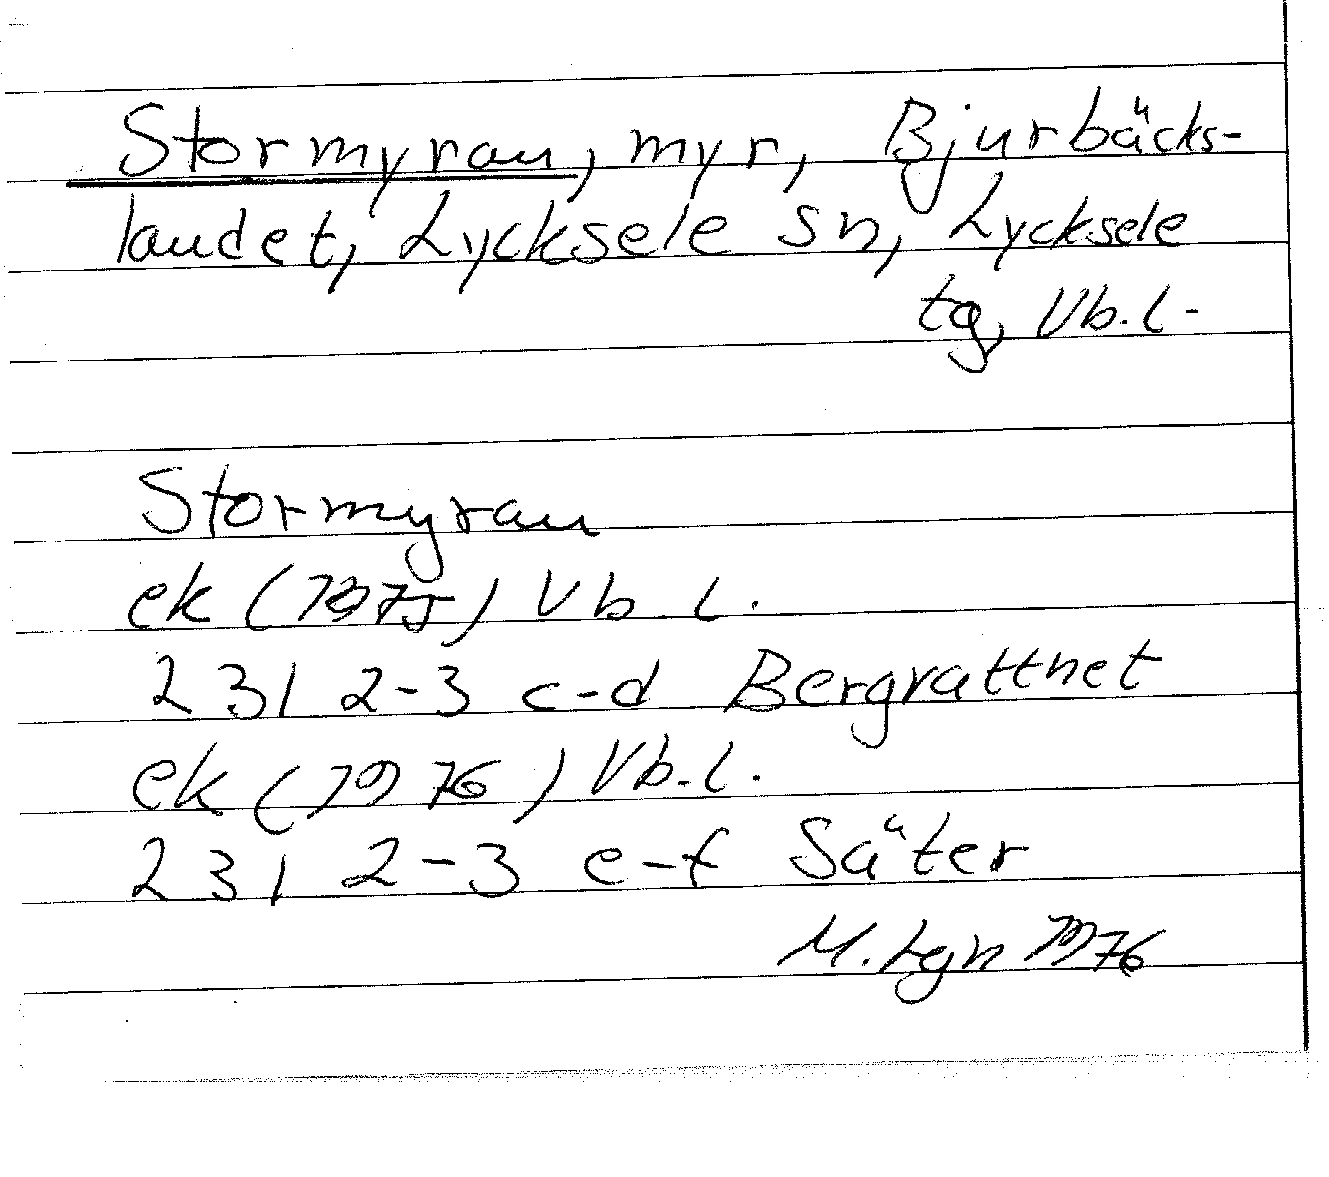 Stormyran, myr, Bjurbäcks-
landet, Lycksele sn, Lycksele
tg, Vb.l.
Stormyran
ek (1975) Vb l.
23I 2-3 c-d Bergvattnet
ek (1976) Vb.l.
23I 2-3 e-f Säter
M. Lgn 1976